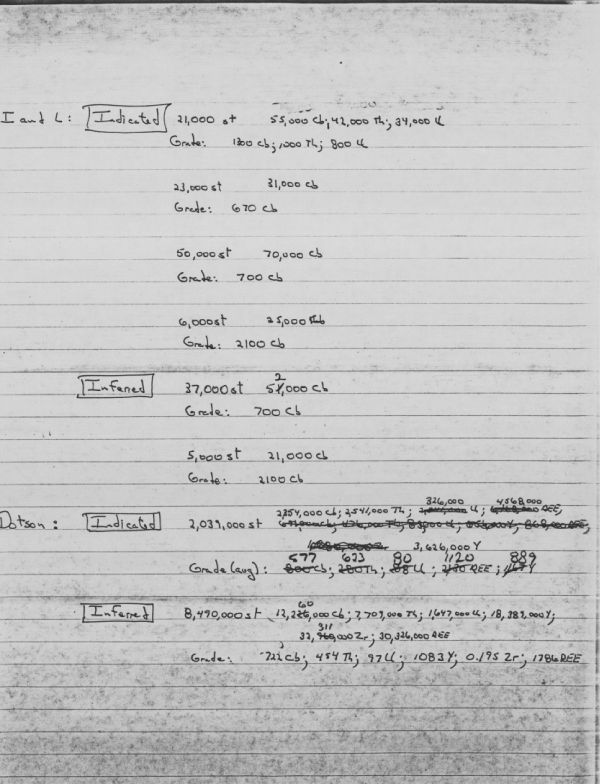 I and L: Indicated 21,000 st 55,000 Cb; 42,000 Th; 34,000 U
Grade: 1300 Cb; 1000 Th; 800 U
23,000 st 31,000 Cb
Grade: 670 Cb
50,000 st 70,000 Cb
Grade: 700 Cb
6,000 st 25,000 Cb
Grade: 2100 Cb
2
Inferred 37,000 st 51,000 Cb
Grade: 700 Cb
5,000 st 21,000 Cb
Grade: 2100 Cb
326,000 4,568,000
2354,000 Cb; 2,541,000 Th; U; REE;
Dotson: Indicated 2,039,000 st
3,626,000 Y
577 623 80 1120 889
Grade (avg): 800 Cb; 280 Th; U; REE; Y
60
Inferred 8,490,000 st 12,226,000 Cb; 7,709,000 Th; 1,647,000 U; 18,389,000 Y;
311
32,960,000 Zr; 30,326,000 REE
Grade: 722 Cb; 454 Th; 97 U; 1083 Y; 0.195 Zr; 1786 REE